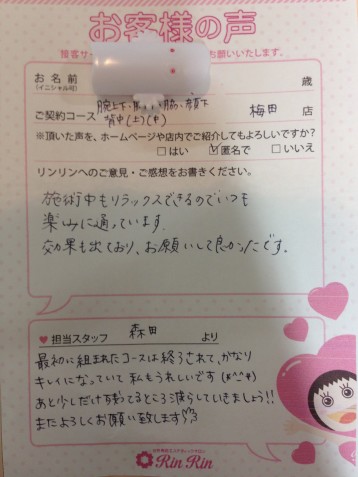 お客様の声
お名前
(イニシャル可)
歳
ご契約コース
背中(上)(中)
梅田 店
※頂いた声を、ホームページや店内でご紹介してもよろしいですか?
□はい ☑匿名で □いいえ
リンリンへのご意見・ご感想をお書きください。
施術中もリラックスできるのでいつも
楽しみに通っています。
効果も出ており、お願いして良かったです。
♥担当スタッフ 森田 より
最初に組まれたコースは終了されて、かなり
キレイになっていて私もうれしいです(*^^*)
あと少しだけ残ってるところ減らしていきましょう!!
またよろしくお願い致します
Rin Rin